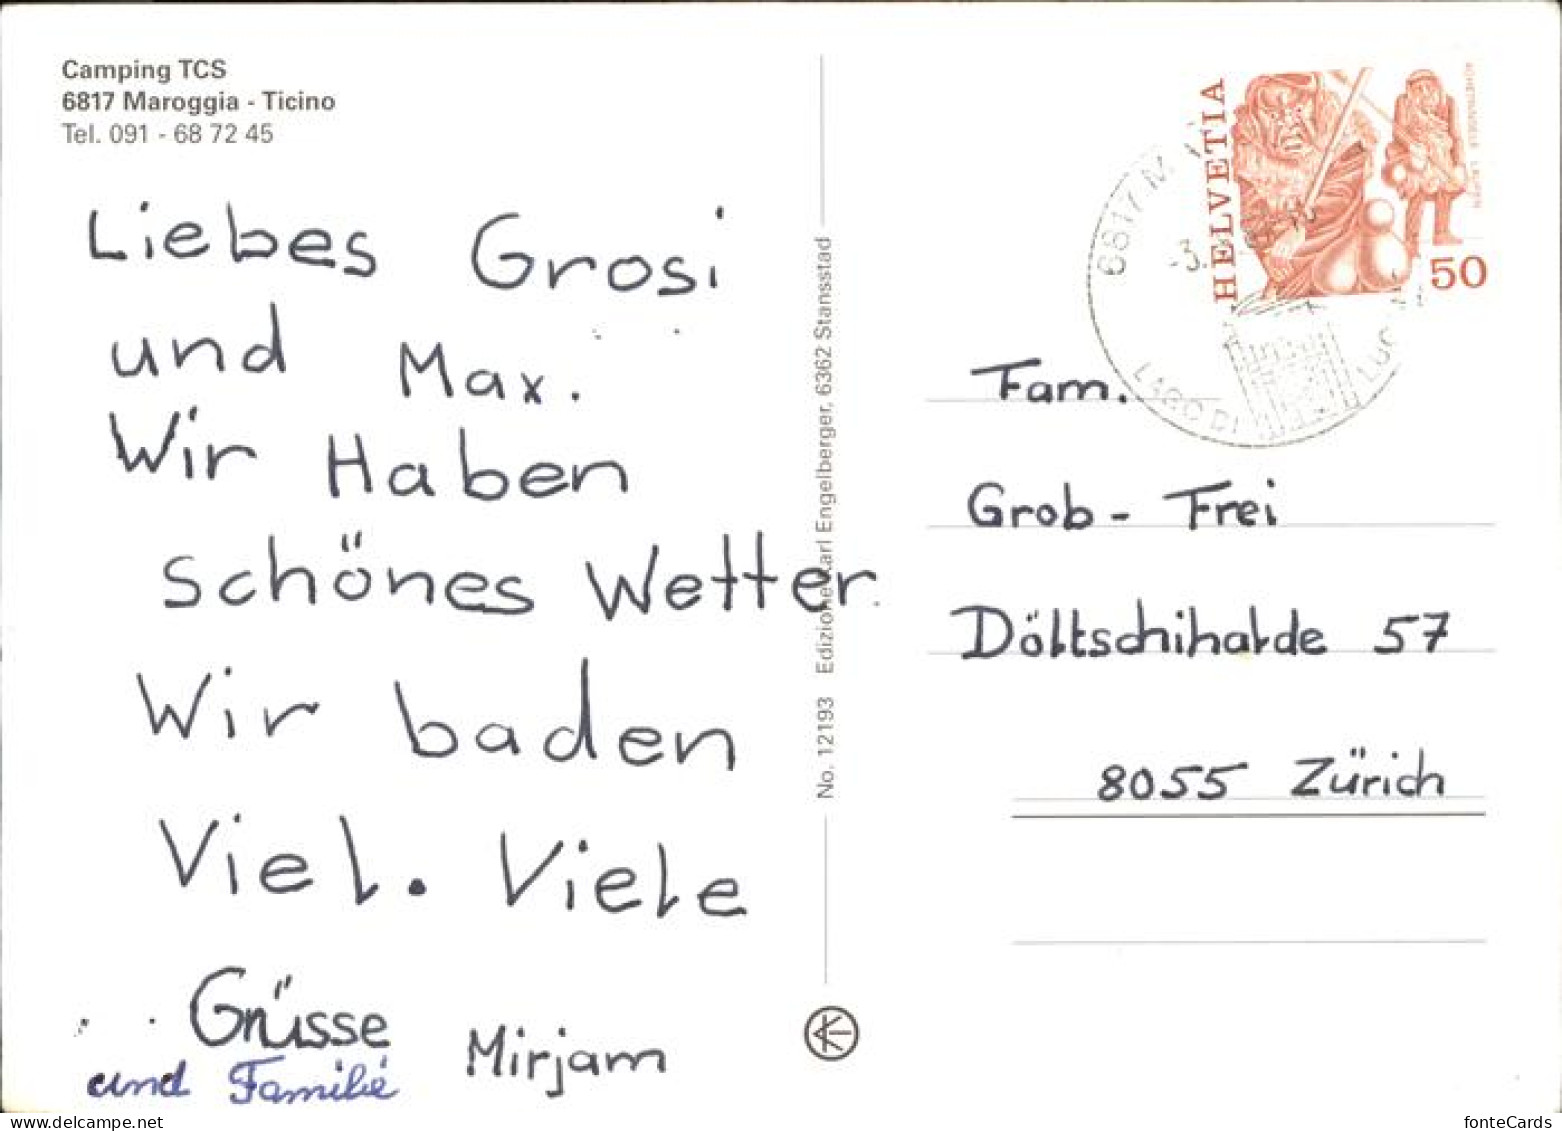 Camping TCS
6817 Maroggia - Ticino
Tel. 091 - 68 72 45
Liebes Grosi
und Max.
Wir Haben
schönes Wetter.
Wir baden
Viel. Viele
Grüsse
Mirjam
und Familie
No. 12193 Edizione Karl Engelberger, 6362 Stansstad
HELVETIA
50
6817 M
- 3.
LAGO DI LUG
Fam.
Grob - Frei
Döltschihalde 57
8055 Zürich
fonteCards